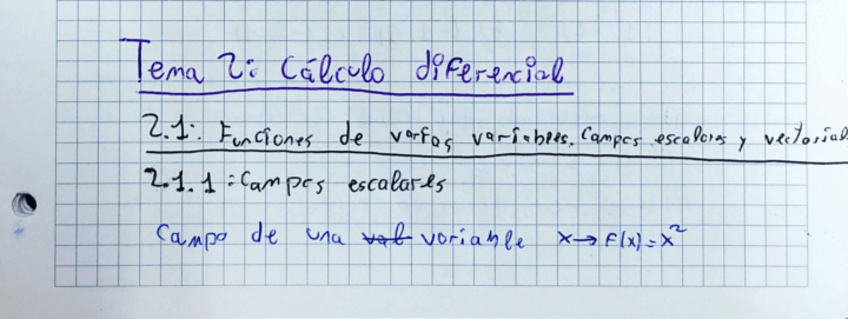 Tema 2: Cálculo diferencial
2.1: Funciones de varias variables. Campos escalares y vectorial
2.1.1: Campos escalares
Campo de una variable x→f(x)=x²